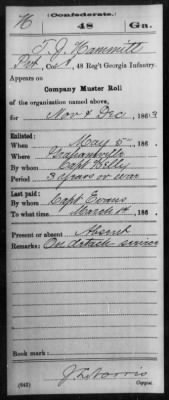 H
(Confederate.)
48
Ga.
T. J. Hammitt
Pvt, Co. A, 48 Reg't Georgia Infantry.
Appears on
Company Muster Roll
of the organization named above,
for Nov & Dec, 1863
Enlisted:
When May 5, 186 .
Where
By whom Capt Kelly
Period 3 years or war
Last paid:
By whom Capt Evans
To what time March 1st, 186 .
Present or absent Absent
Remarks: On detach service
Book mark:
(642)
Copyist.